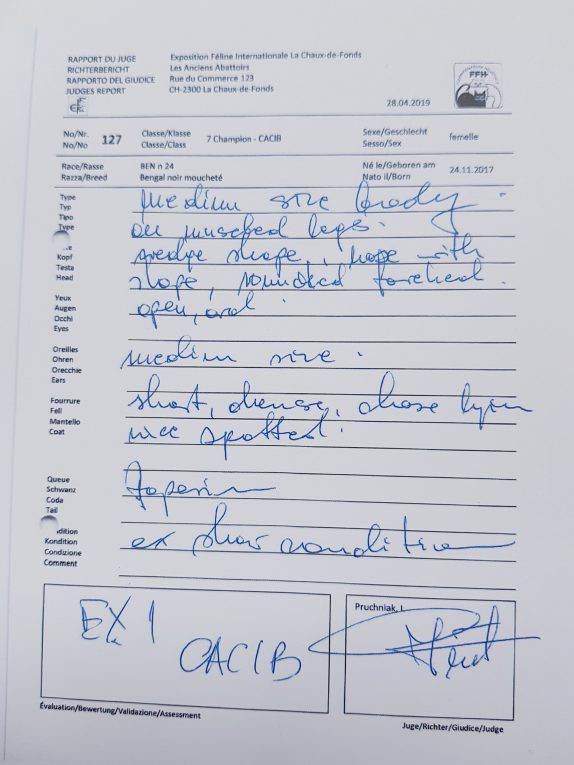 RAPPORT DU JUGE
RICHTERBERICHT
RAPPORTO DEL GIUDICE
JUDGES REPORT
Exposition Féline Internationale La Chaux-de-Fonds
Les Anciens Abattoirs
Rue du Commerce 123
CH-2300 La Chaux-de-Fonds
28.04.2019
FFH
No/Nr.
No/No
127
Classe/Klasse
Classe/Class
7 Champion - CACIB
Sexe/Geschlecht
Sesso/Sex
femelle
Race/Rasse
Razza/Breed
BEN n 24
Bengal noir moucheté
Né le/Geboren am
Nato il/Born
24.11.2017
Type
Typ
Tipo
Type
medium size body.
on muscled legs.
Kopf
Testa
Head
wedge shape, nose with
slope, rounded forehead.
Yeux
Augen
Occhi
Eyes
open, oval.
Oreilles
Ohren
Orecchie
Ears
medium size.
Fourrure
Fell
Mantello
Coat
short, dense, close lying
nice spotted.
Queue
Schwanz
Coda
Tail
Kondition
Condizione
Comment
ex show condition
EX 1
CACIB
Pruchniak, I.
Évaluation/Bewertung/Validazione/Assessment
Juge/Richter/Giudice/Judge